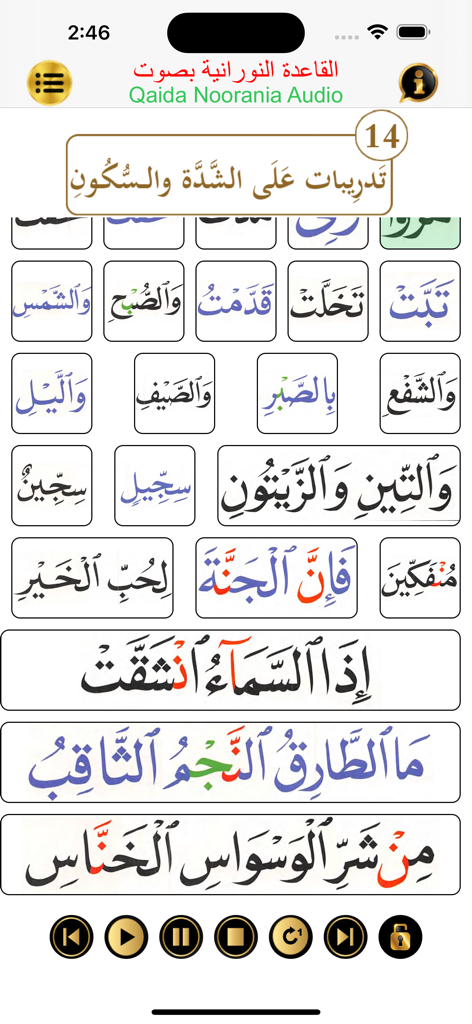 2:46
القاعدة النورانية بصوت
Qaida Noorania Audio
14
تَدرِيبات عَلَى الشَّدَّة والسُّكُونِ
تَبَّتۡ تَخَلَّتۡ قَدَّمۡتُ وَٱلصُّبۡحِ وَٱلشَّمۡسِ
وَٱلشَّفۡعِ بِٱلصَّبۡرِ وَٱلصَّيۡفِ وَٱلَّيۡلِ
وَٱلتِّينِ وَٱلزَّيۡتُونِ سِجِّيلٍ سِجِّينٌ
مُنۡفَكِّينَ فَإِنَّ ٱلۡجَنَّةَ لِحُبِّ ٱلۡخَيۡرِ
إِذَا ٱلسَّمَآءُ ٱنۡشَقَّتۡ
مَا ٱلطَّارِقُ ٱلنَّجۡمُ ٱلثَّاقِبُ
مِنۡ شَرِّ ٱلۡوَسۡوَاسِ ٱلۡخَنَّاسِ
1